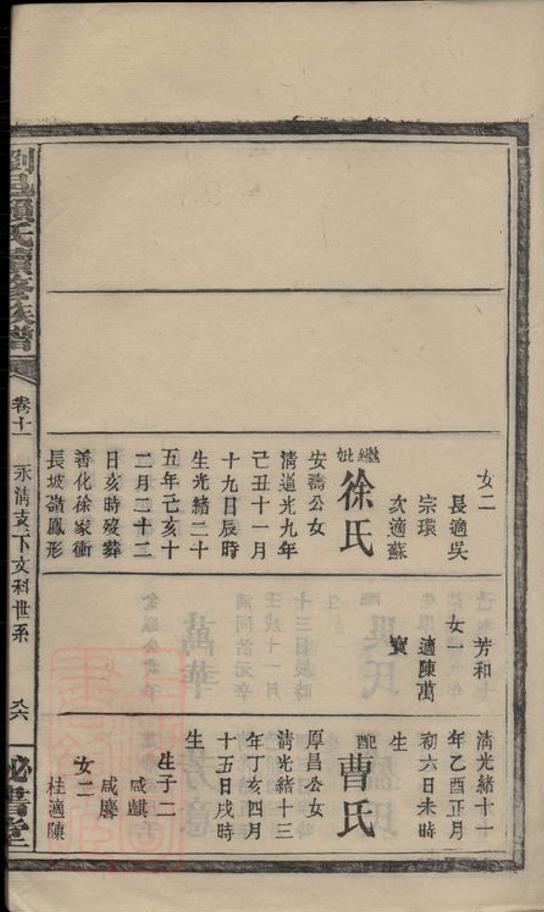 女二
長適吳
宗環
次適蘇
繼妣
徐氏
安濤公女
清道光九年
己丑十一月
十九日辰時
生光緒二十
五年己亥十
二月二十二
日亥時歿葬
善化徐家衝
長坡嶺鳳形
芳和
女一
適陳萬
寶
清光緒十一
年乙酉正月
初六日未時
生
配
曹氏
厚昌公女
清光緒十三
年丁亥四月
十五日戌時
生
生子二
咸麒
咸麐
女二
桂適陳
劉邑賴氏續修族譜
卷十一
永清支下文科世系
秘書堂